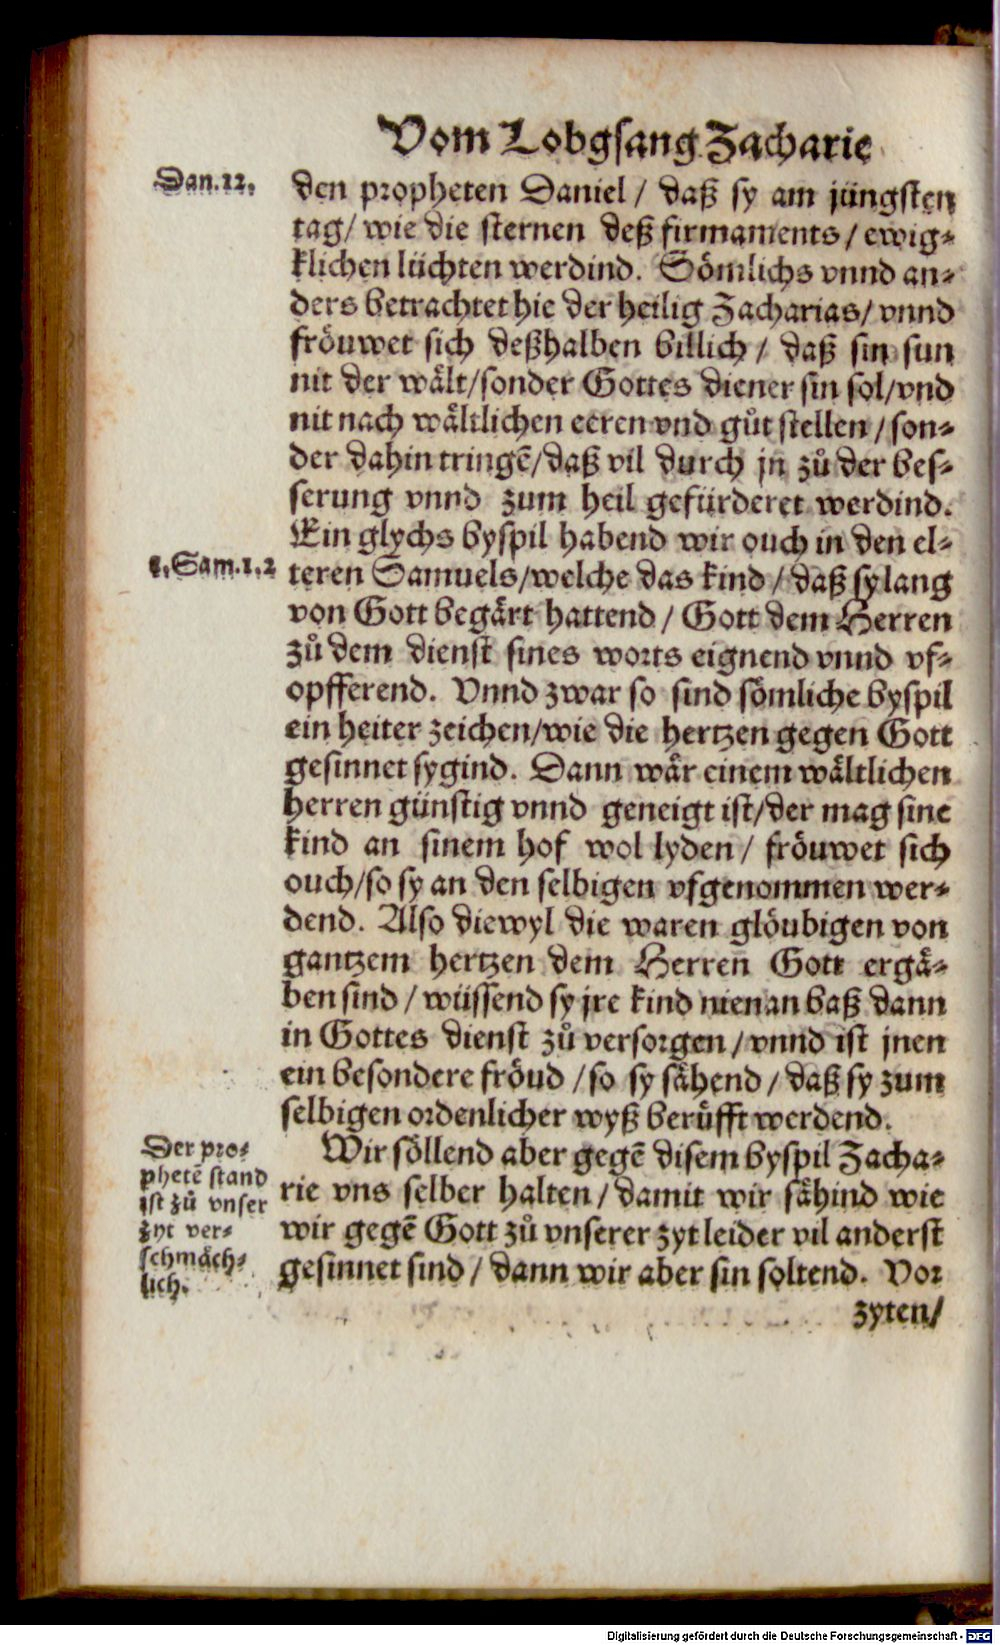 Vom Lobgsang Zacharie
Dan.12.
den propheten Daniel / daß sy am jüngsten
tag / wie die sternen deß firmaments / ewig⸗
klichen lüchten werdind. Sömlichs vnnd an⸗
ders betrachtet hie der heilig Zacharias / vnnd
fröuwet sich deßhalben billich / daß sin sun
nit der wält / sonder Gottes diener sin sol / vnd
nit nach wältlichen eeren vnd gůt stellen / son⸗
der dahin tringē / daß vil durch jn zů der bes⸗
serung vnnd zum heil gefürderet werdind.
Ein glychs byspil habend wir ouch in den el⸗
1.Sam.1.2
teren Samuels / welche das kind / daß sy lang
von Gott begärt hattend / Gott dem Herren
zů dem dienst sines worts eignend vnnd vf⸗
opfferend. Vnnd zwar so sind sömliche byspil
ein heiter zeichen / wie die hertzen gegen Gott
gesinnet sygind. Dann wär einem wältlichen
herren günstig vnnd geneigt ist / der mag sine
kind an sinem hof wol lyden / fröuwet sich
ouch / so sy an den selbigen vfgenommen wer⸗
dend. Also diewyl die waren glöubigen von
gantzem hertzen dem Herren Gott ergä⸗
ben sind / wüssend sy jre kind nienan baß dann
in Gottes dienst zů versorgen / vnnd ist jnen
ein besondere fröud / so sy sähend / daß sy zum
selbigen ordenlicher wyß berüfft werdend.
Der pro⸗
phetē stand
ist zů vnser
zyt ver⸗
schmäch⸗
lich.
Wir söllend aber gegē disem byspil Zacha⸗
rie vns selber halten / damit wir sähind wie
wir gegē Gott zů vnserer zyt leider vil anderst
gesinnet sind / dann wir aber sin soltend. Vor
zyten /
Digitalisierung gefördert durch die Deutsche Forschungsgemeinschaft - DFG